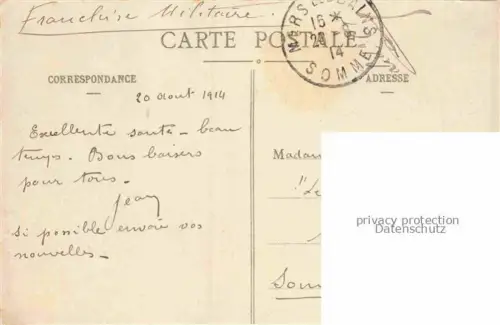 Franchise Militaire.
CARTE POSTALE
MERS LES BAINS
15 *
20 - 8
14
SOMME
CORRESPONDANCE
ADRESSE
20 Aout 1914
Excellente santé - beau
temps. Bons baisers
pour tous.
Jean
si possible envoie vos
nouvelles -
Madam
"Le
Som
privacy protection
Datenschutz